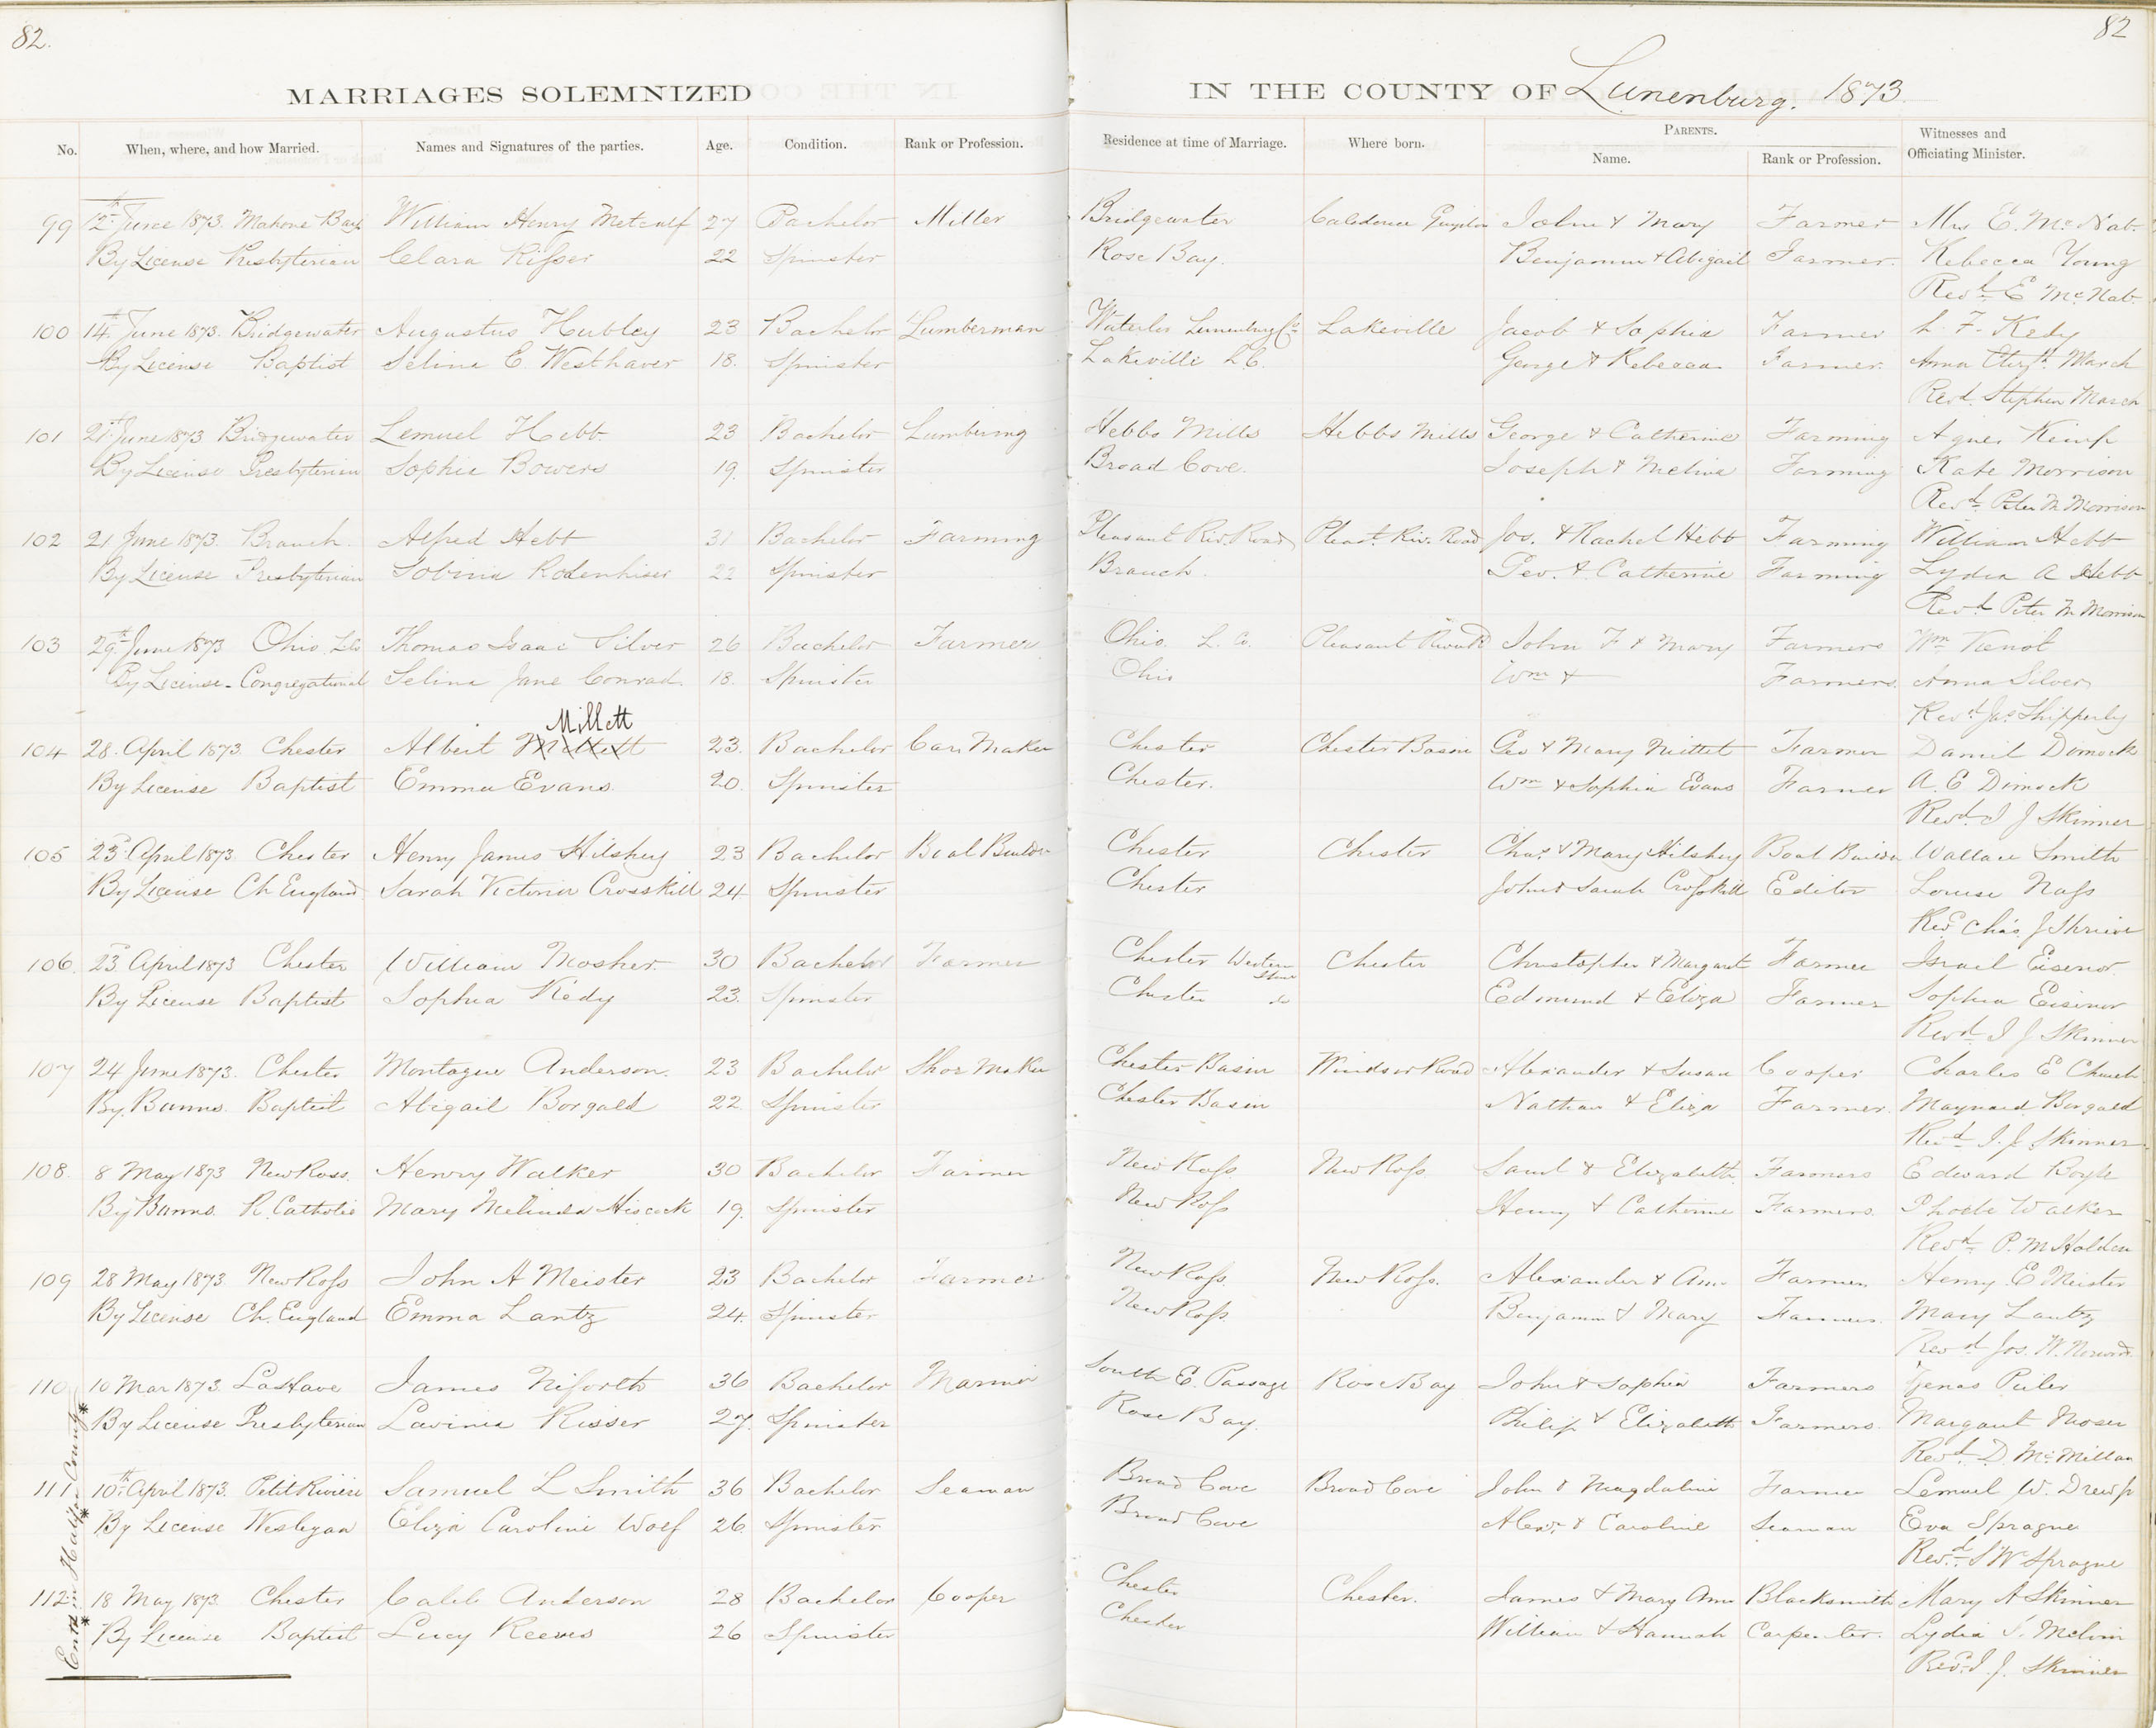 82.
82
MARRIAGES SOLEMNIZED IN THE COUNTY OF Lunenburg. 1873.
No. When, where, and how Married. Names and Signatures of the parties. Age. Condition. Rank or Profession. Residence at time of Marriage. Where born. PARENTS. Name. Rank or Profession. Witnesses and Officiating Minister.
99 12th June 1873. Mahone Bay William Henry Metcalf 27 Bachelor Miller Bridgewater Caledonia John & Mary Farmer Mrs E. McNab
By License Presbyterian Clara Risser 22 Spinster Rose Bay. Benjamin & Abigail Farmer. Rebecca Young
Revd E McNab.
100 14th June 1873. Bridgewater Augustus Hubley 23 Bachelor Lumberman Waterloo Lunenburg Co Lakeville Jacob & Sophia Farmer L. F. Kedy
By License Baptist Selina E. Westhaver 18. Spinster Lakeville L.C. George & Rebecca Farmer. Anna Elizth March
Revd. Stephen March
101 21st June 1873 Bridgewater Lemuel Hebb 23 Bachelor Lumbering Hebbs Mills Hebbs Mills George & Catherine Farming Agnes Kemp
By License Presbyterian Sophie Bowers 19. Spinster Broad Cove. Joseph & Melina Farming Kate Morrison
Revd. Peter M Morrison
102 21 June 1873. Branch. Alfred Hebb 31 Bachelor Farming Pleasant Riv. Road Pleast. Riv. Road Jos. & Rachel Hebb Farming William Hebb
By License Presbyterian Sobina Rodenhiser 22 Spinster Branch. Geo. & Catherine Farming Lydia A Hebb
Revd Peter M Morrison
103 29th June 1873 Ohio. L Co Thomas Isaac Silver 26 Bachelor Farmer Ohio. L. Co. Pleasant River Rd John F & Mary Farmers Wm Kenot
By License - Congregational Selina Jane Conrad. 18. Spinster Ohio Wm & Farmers. Anna Silver
Revd Jas. Shipperly
Millett
104 28. April 1873. Chester Albert 23. Bachelor Carr. Maker Chester Chester Basin Geo & Mary Millet Farmer Daniel Dimock
By License Baptist Emma Evans. 20. Spinster Chester. Wm & Sophia Evans Farmer A. E Dimock
Revd. I J Skinner
105 23d April 1873. Chester Henry James Hilshey 23 Bachelor Boat Builder Chester Chester Chas. & Mary Hilshey Boat Builder Wallace Smith
By License Ch England Sarah Victoria Crosskill 24 Spinster Chester John & Sarah Crosskill Editor Louise Nass
Revd Chas. J Shrieve
106. 23d April 1873 Chester William Mosher. 30 Bachelor Farmer Chester Western Shore Chester Christopher & Margaret Farmer Israel Eisenor
By License Baptist Sophia Kedy 23. Spinster Chester do Edmund & Eliza Farmer Sophia Eisenor
Revd I J Skinner
107 24 June 1873. Chester Montague Anderson. 23 Bachelor Shoe Maker Chester Basin Windsor Road Alexander & Susan Cooper Charles E Church
By Banns. Baptist Abigail Borgald 22 Spinster Chester Basin Nathan & Eliza Farmer. Maynard Borgald
Revd I. J. Skinner
108. 8 May 1873 New Ross. Henry Walker 30 Bachelor Farmer New Ross. New Ross. Saml & Elizabeth Farmers Edward Boyle
By Banns. R. Catholic Mary Melinda Hiscock 19. Spinster New Ross Henry & Catherine Farmers. Phoebe Walker
Revd P. M Holden
109 28 May 1873. New Ross John A Meister 23 Bachelor Farmer New Ross. New Ross. Alexander & Ann Farmer Henry E Meister
By License Ch. England Emma Lantz 24. Spinster New Ross. Benjamin & Mary Farmers. Mary Lantz
Revd Jos. W. Norwood
110 10 Mar 1873. LaHave James Niforth 36 Bachelor Mariner South E. Passage Rose Bay John & Sophia Farmers Zenas
By License Presbyterian Lavinia Risser 27. Spinster Rose Bay. Philip & Elizabeth Farmers. Margaret Moser
Revd. D. McMillan
111 10th April 1873. Petit Riviere Samuel L Smith 36 Bachelor Seaman Broad Cove Broad Cove John & Magdaline Farmer Lemuel W. Drew Jr
By License Wesleyan Eliza Caroline Wolf 26. Spinster Broad Cove Alexr. & Caroline Seaman Eva Sprague
Revd. S W Sprague
112 18 May 1873. Chester Caleb Anderson 28 Bachelor Cooper Chester Chester. James & Mary Ann Blacksmith Mary A Skinner
By License Baptist Lucy Reeves 26 Spinster Chester William & Hannah Carpenter. Lydia S. Melvin
Revd. I. J. Skinner
Entd in Halifax County